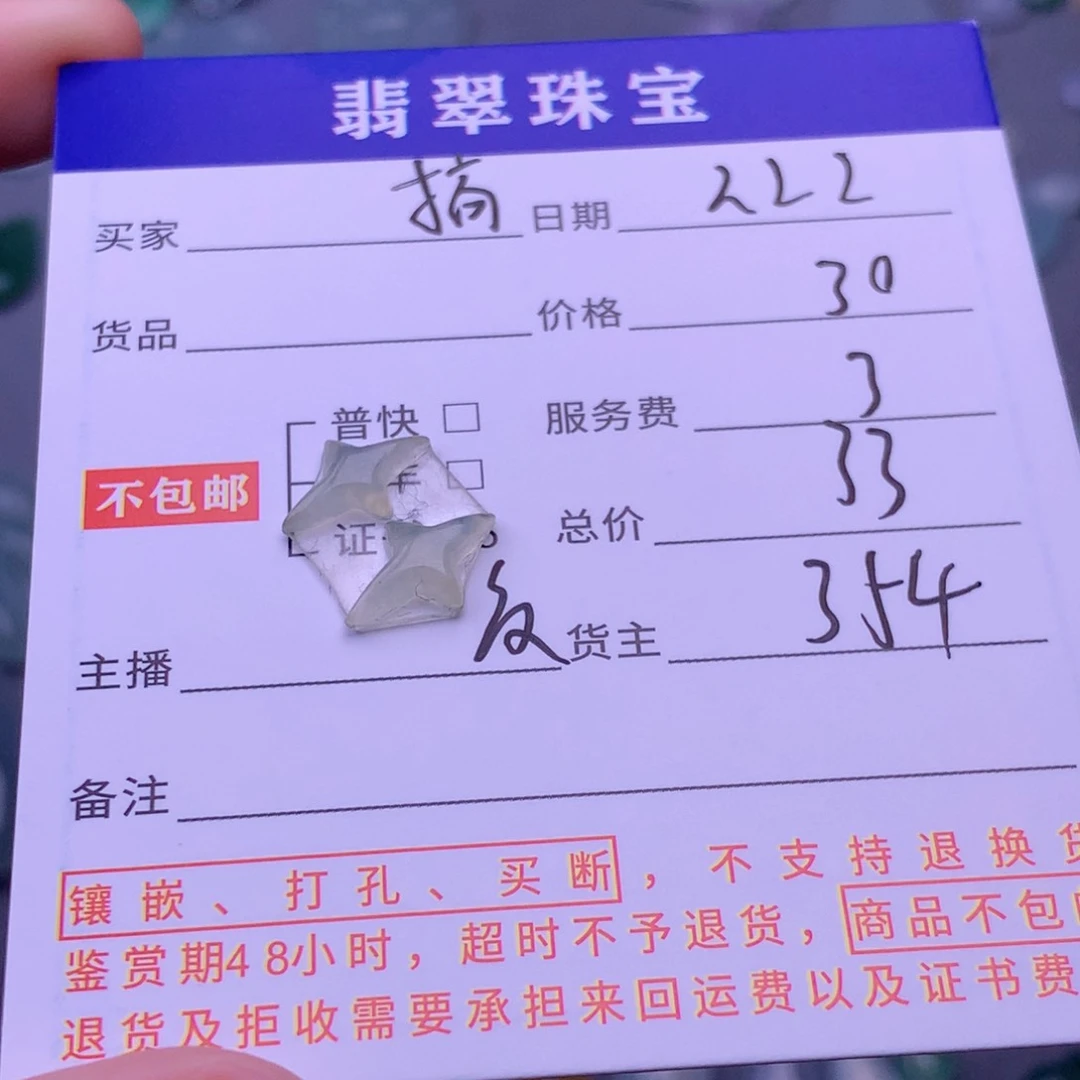 翡翠珠宝
买家 搞 日期 222
货品 价格 30
普快 服务费 3
不包邮
33
证 总价
主播 货主 354
备注
镶嵌、打孔、买断，不支持退换货
鉴赏期48小时，超时不予退货，商品不包
退货及拒收需要承担来回运费以及证书费